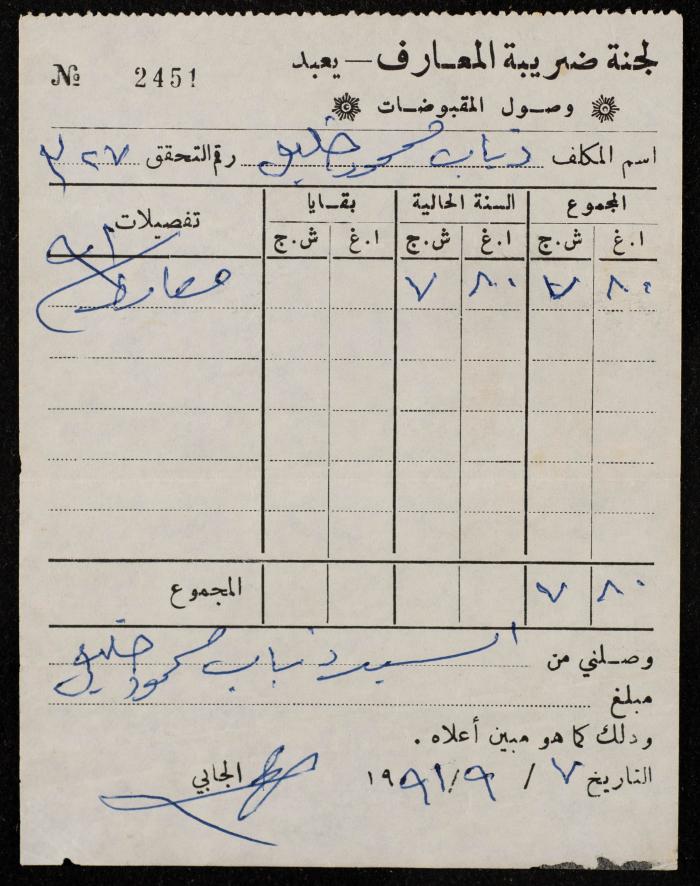 لجنة ضريبة المعارف — يعبد
№ 2451
وصول المقبوضات
اسم المكلف ذياب محمود خليل رقم التحقق ٢٧
المجموع السنة الحالية بقايا تفصيلات
ا.غ ش.ج ا.غ ش.ج ا.غ ش.ج
٨٠ ٧ ٨٠ ٧ معارف
المجموع
٨٠ ٧
وصلني من السيد ذياب محمود خليل
مبلغ
وذلك كما هو مبين أعلاه .
التاريخ ٧ / ٩/ ١٩٩١ الجابي